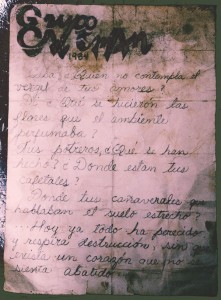 Grupo
GUZMAN
1984
¿Quien no contempla el
vergel de tus amores?
¿Qué se hicieron las
flores que el ambiente
perfumaba?
Tus potreros, ¿Qué se han
hecho? ¿Donde estan tus
cafetales?
Donde tus canaverales que
hablaban el suelo estrecho?
...Hoy ya todo ha parecido
y respira destrucción, sin que
exista un corazón que no se
sienta abatido